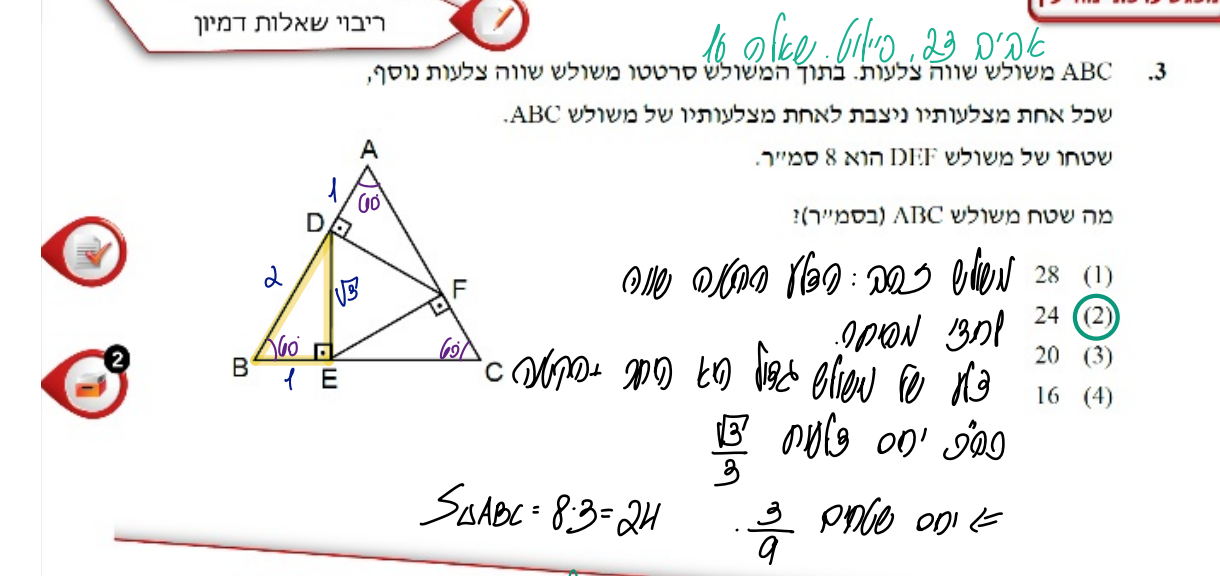 ריבוי שאלות דמיון
אביב 23, פיילוט. שאלה 16
3. ABC משולש שווה צלעות. בתוך המשולש סרטטו משולש שווה צלעות נוסף,
שכל אחת מצלעותיו ניצבת לאחת מצלעותיו של משולש ABC.
שטחו של משולש DEF הוא 8 סמ״ר.
מה שטח משולש ABC (בסמ״ר)?
(1) 28
(2) 24
(3) 20
(4) 16
A
1
60°
D
2
√3
F
B
60°
60°
1
E
C
2
משולש זהב: הצלע הקטנה שווה
לחצי מהיתר.
צלע של משולש גדול היא היתר + הקטנה
סה״כ יחס צלעות √3/3
⇐ יחס שטחים 3/9.
S△ABC = 8·3 = 24